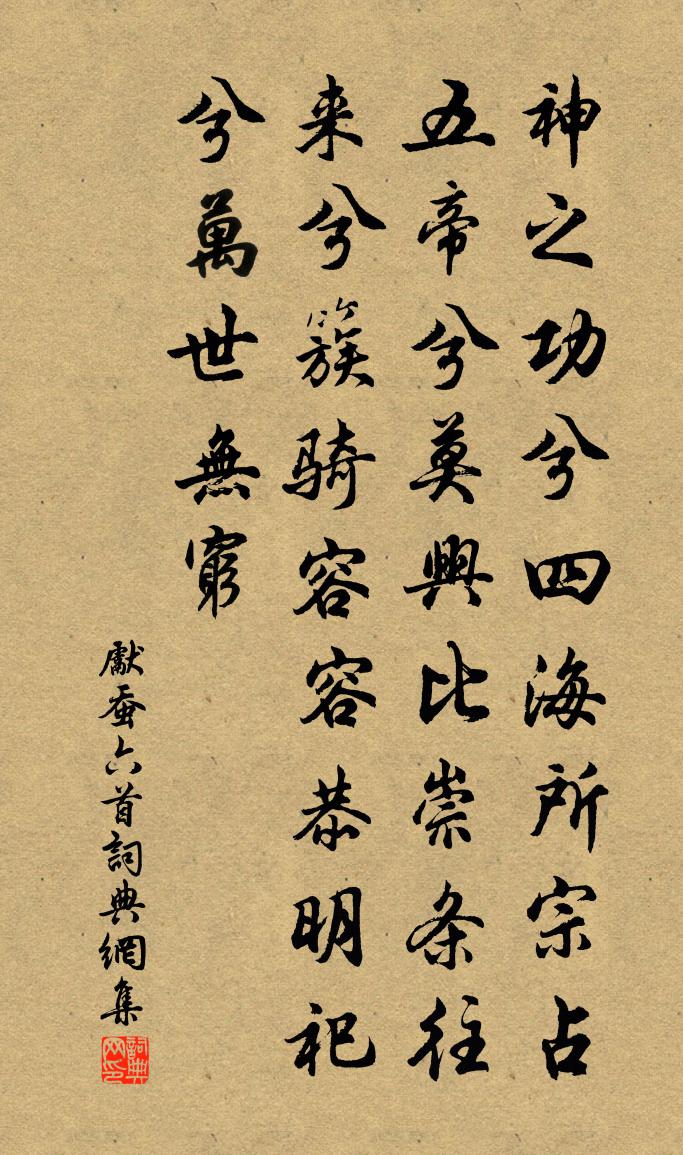 神之功兮四海所宗占
五帝兮莫興比崇条往
来兮簇骑容容恭明祀
兮萬世無窮
獻蚕六首詞典網集
詞典网印